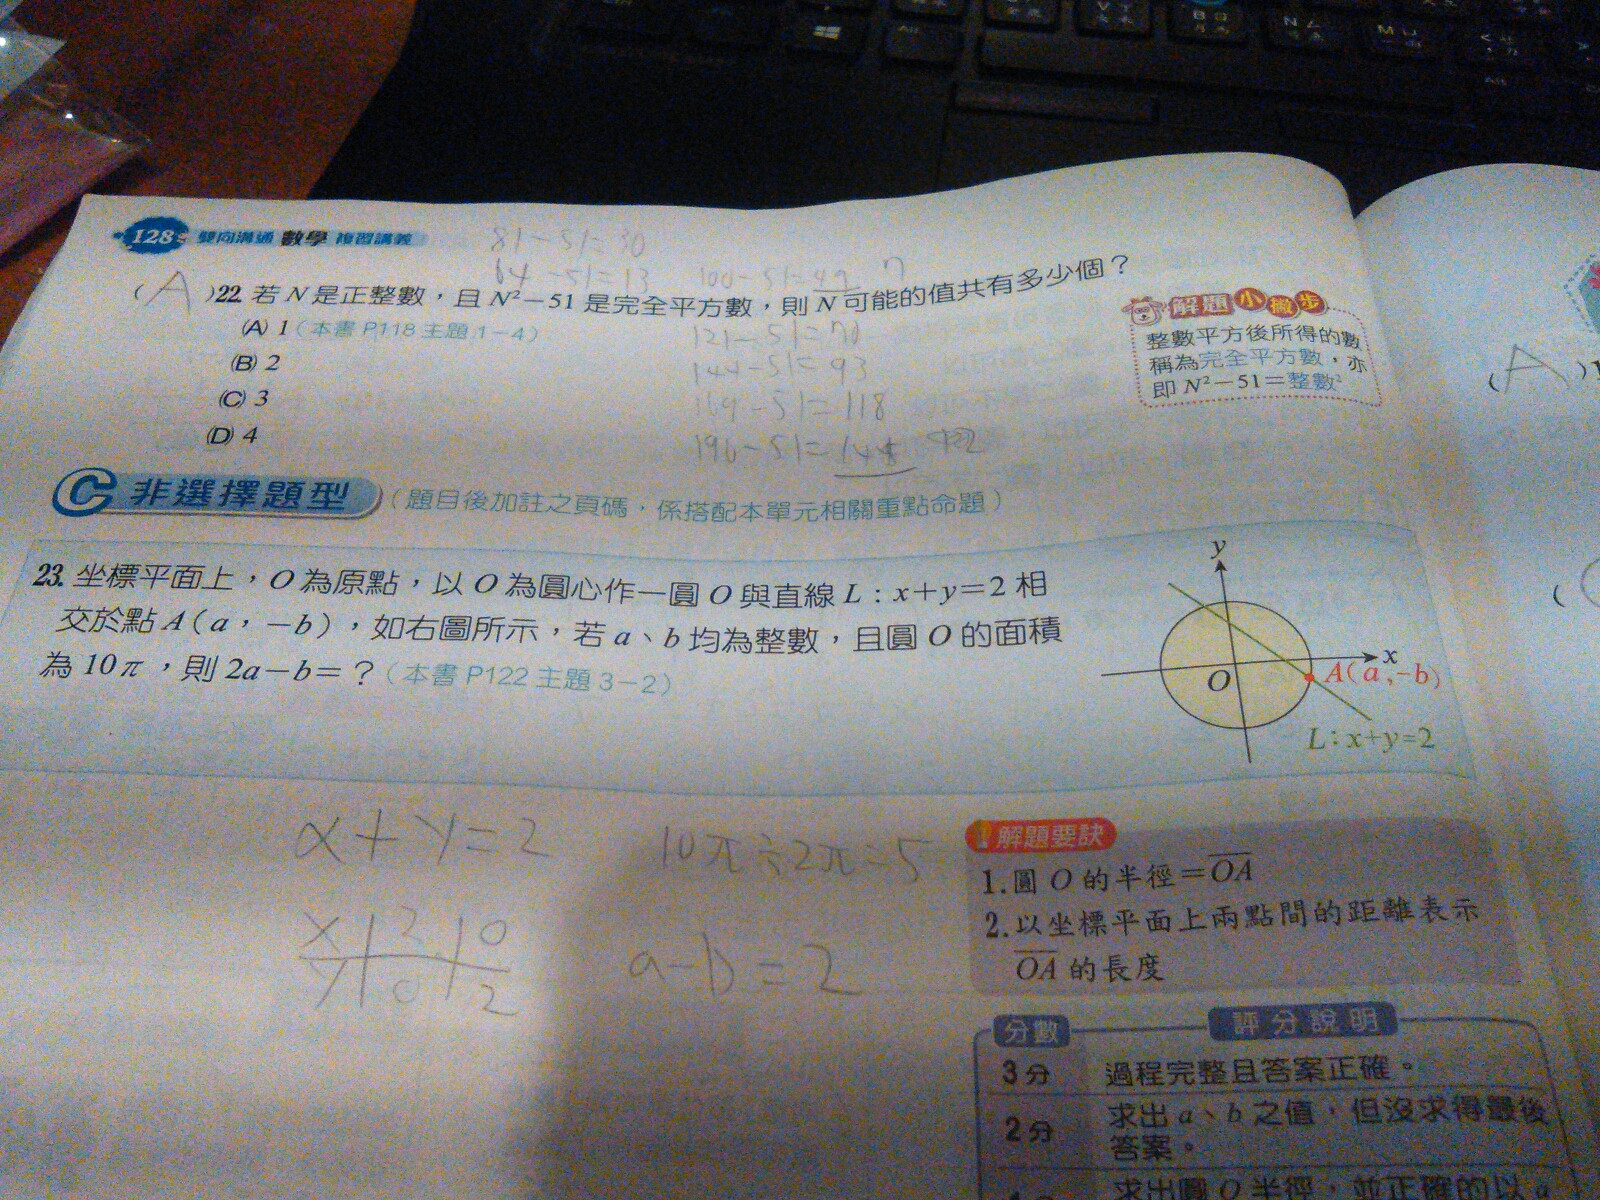 128 雙向溝通 數學 複習講義
81-51=30
64-51=13
100-51=49 7
(A)22. 若 N 是正整數，且 N²－51 是完全平方數，則 N 可能的值共有多少個？
(A) 1（本書 P118 主題 1－4）
(B) 2
(C) 3
(D) 4
121-51=70
144-51=93
169-51=118
196-51=145
解題小撇步
整數平方後所得的數
稱為完全平方數，亦
即 N²－51＝整數²
(A)
C 非選擇題型（題目後加註之頁碼，係搭配本單元相關重點命題）
23. 坐標平面上，O 為原點，以 O 為圓心作一圓 O 與直線 L：x＋y＝2 相
交於點 A（a，－b），如右圖所示，若 a、b 均為整數，且圓 O 的面積
為 10π，則 2a－b＝？（本書 P122 主題 3－2）
y
x
O
A(a,-b)
L：x+y=2
x+y=2
10π÷2π=5
x 2 0
y 0 2
a-b=2
解題要訣
1.圓 O 的半徑＝OA
2.以坐標平面上兩點間的距離表示
OA 的長度
分數 評分說明
3分 過程完整且答案正確。
2分 求出 a、b 之值，但沒求得最後
答案。
求出圓 O 半徑，並正確的以 a